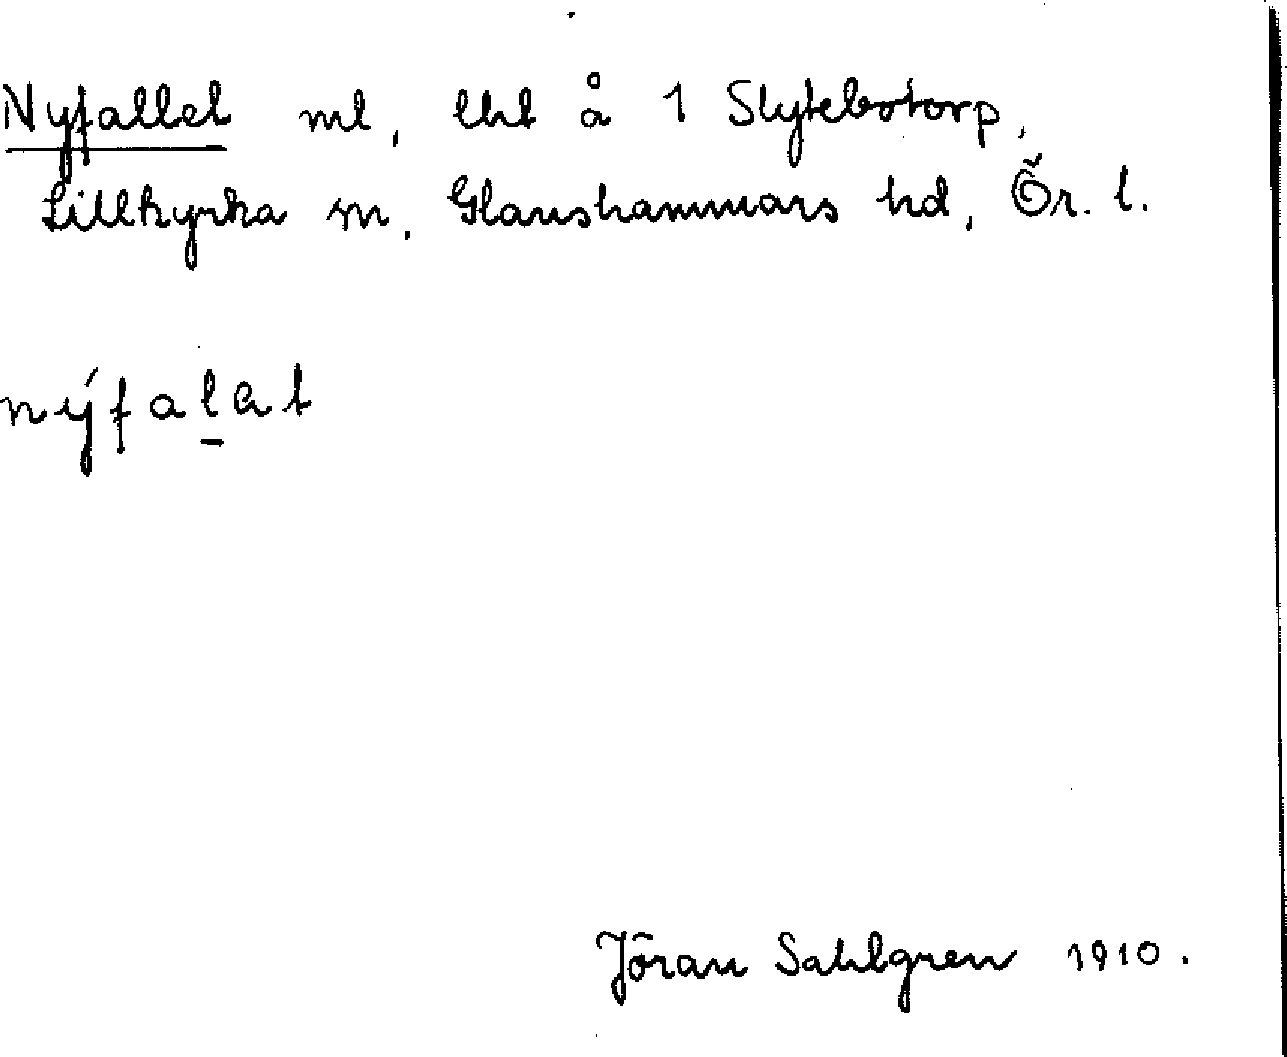 Nyfallet ml, lht å 1 Slytebotorp,
Lillkyrka sn, Glanshammars hd, Ör. l.
nýfalat
Jöran Sahlgren 1910.